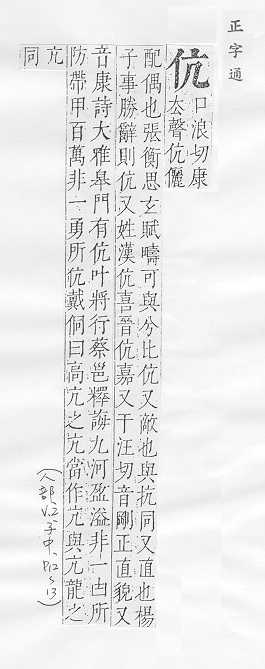 正字通
伉
口浪切康
厺聲伉儷
配偶也張衡思玄賦疇可與兮比伉又敵也與抗同又直也楊
子事勝辭則伉又姓漢伉喜晉伉嘉又干汪切音剛正直貌又
音康詩大雅皋門有伉叶將行蔡邕釋誨九河盈溢非一凷所
防帶甲百萬非一勇所伉戴侗曰高亢之亢當作亢與亢龍之
亢
同
(人部 V.2 子中、P.12~13)